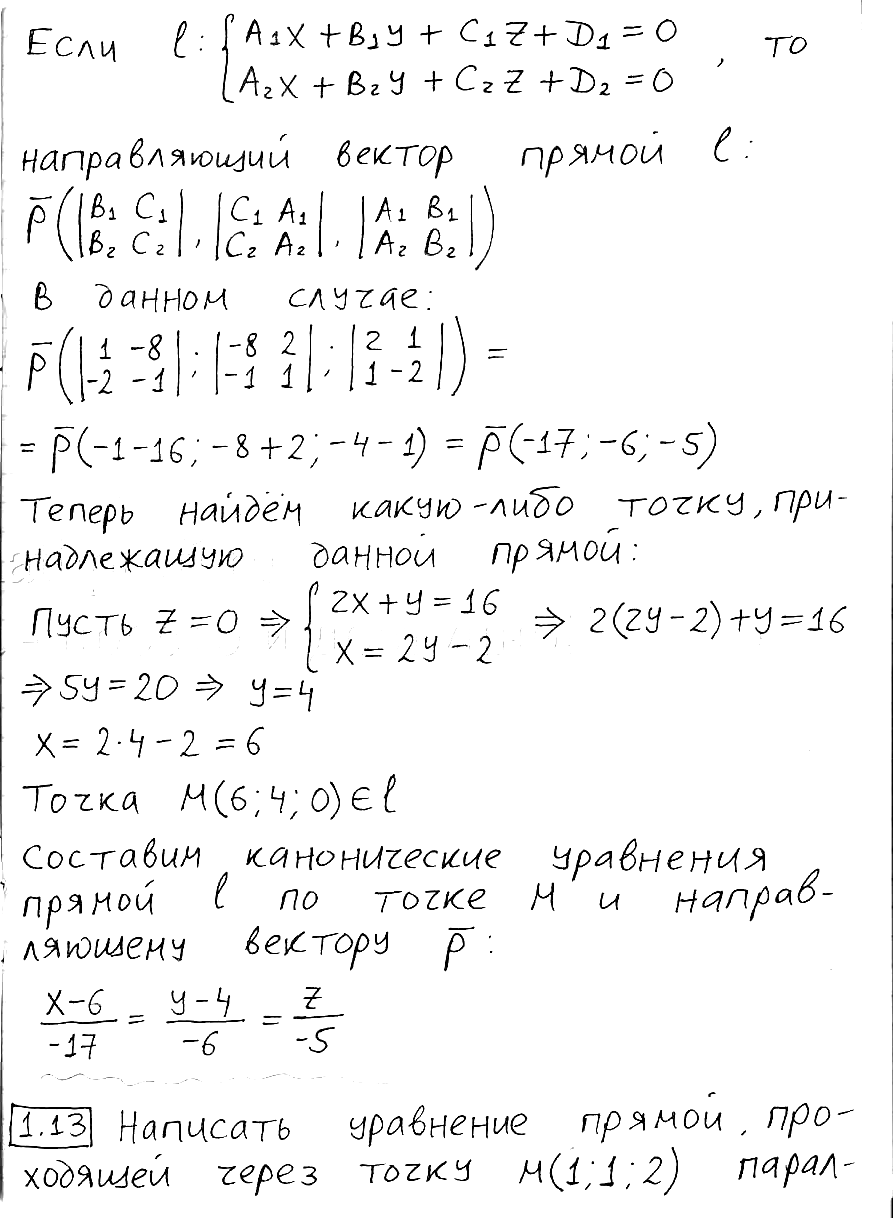 Если l: { A₁X + B₁Y + C₁Z + D₁ = 0
A₂X + B₂Y + C₂Z + D₂ = 0 , то
направляющий вектор прямой l:
p̄(|B₁ C₁|, |C₁ A₁|, |A₁ B₁|)
|B₂ C₂| |C₂ A₂| |A₂ B₂|
В данном случае:
p̄(|1 -8|; |-8 2|; |2 1|) =
|-2 -1| |-1 1| |1 -2|
= p̄(-1-16; -8+2; -4-1) = p̄(-17; -6; -5)
Теперь найдём какую-либо точку, при-
надлежащую данной прямой:
Пусть Z=0 ⇒ { 2X+Y=16
X=2Y-2 ⇒ 2(2Y-2)+Y=16
⇒ 5Y=20 ⇒ Y=4
X=2·4-2=6
Точка M(6;4;0)∈l
Составим канонические уравнения
прямой l по точке M и направ-
ляющему вектору p̄:
X-6/-17 = Y-4/-6 = Z/-5
1.13 Написать уравнение прямой, про-
ходящей через точку M(1;1;2) парал-